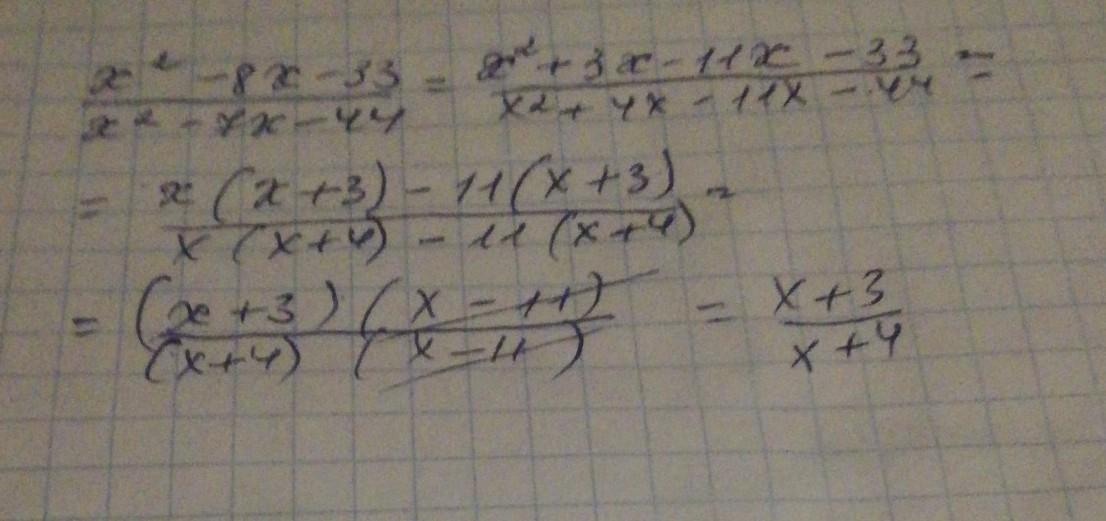 (x² - 8x - 33)/(x² - 7x - 44) = (x² + 3x - 11x - 33)/(x² + 4x - 11x - 44) =
= (x(x + 3) - 11(x + 3))/(x(x + 4) - 11(x + 4)) =
= ((x + 3)(x - 11))/((x + 4)(x - 11)) = (x + 3)/(x + 4)